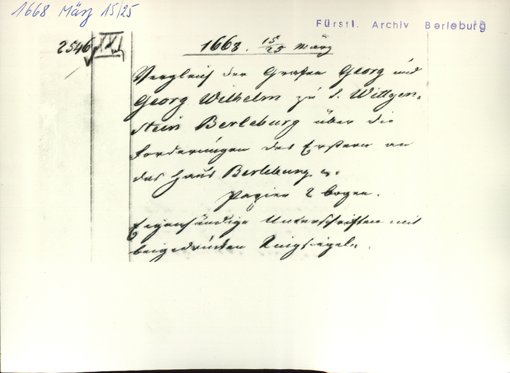 1668 März 15/25
Fürstl. Archiv Berleburg
2546 XXI
1668. 15/25 März
Vergleich der Grafen Georg und
Georg Wilhelm zu S. Wittgen-
stein Berleburg über die
Forderungen des Erstern an
das Haus Berleburg
Papier 2 Bogen.
Eigenhändige Unterschriften mit
beigedrückten Ringsiegeln.